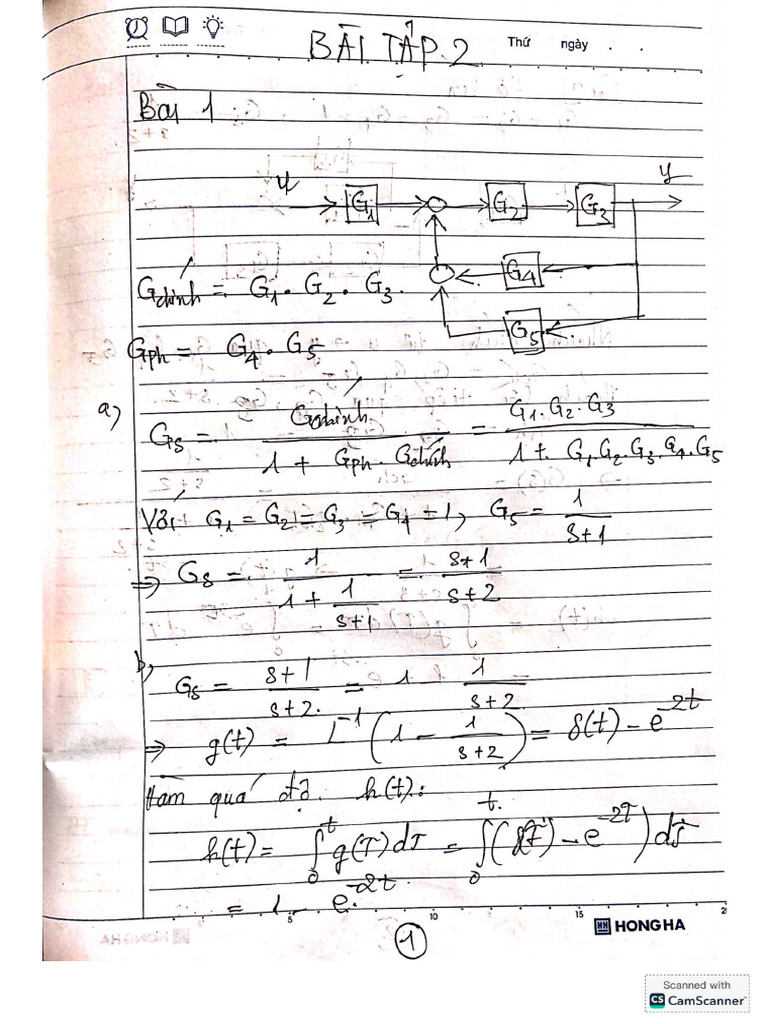 BÀI TẬP 2
Thứ ngày . .
Bài 1
u G₁ G₂ G₃ y
G₄
G₅
Gchính = G₁ . G₂ . G₃.
Gph = G₄ . G₅
a) Gs = Gchính / (1 + Gph . Gchính) = G₁.G₂.G₃ / (1 + G₁.G₂.G₃.G₄.G₅)
Với G₁ = G₂ = G₃ = G₄ = 1, G₅ = 1/(s+1)
=> Gs = 1 / (1 + 1/(s+1)) = (s+1)/(s+2)
b, Gs = (s+1)/(s+2) = 1 - 1/(s+2)
=> g(t) = L⁻¹ (1 - 1/(s+2)) = δ(t) - e^-2t
Hàm quá độ h(t):
h(t) = ∫₀ᵗ g(τ) dτ = ∫₀ᵗ (δ(τ) - e^-2τ) dτ
= 1 - e^-2t
5 10 15 2
HH HONG HA
1
Scanned with
CS CamScanner